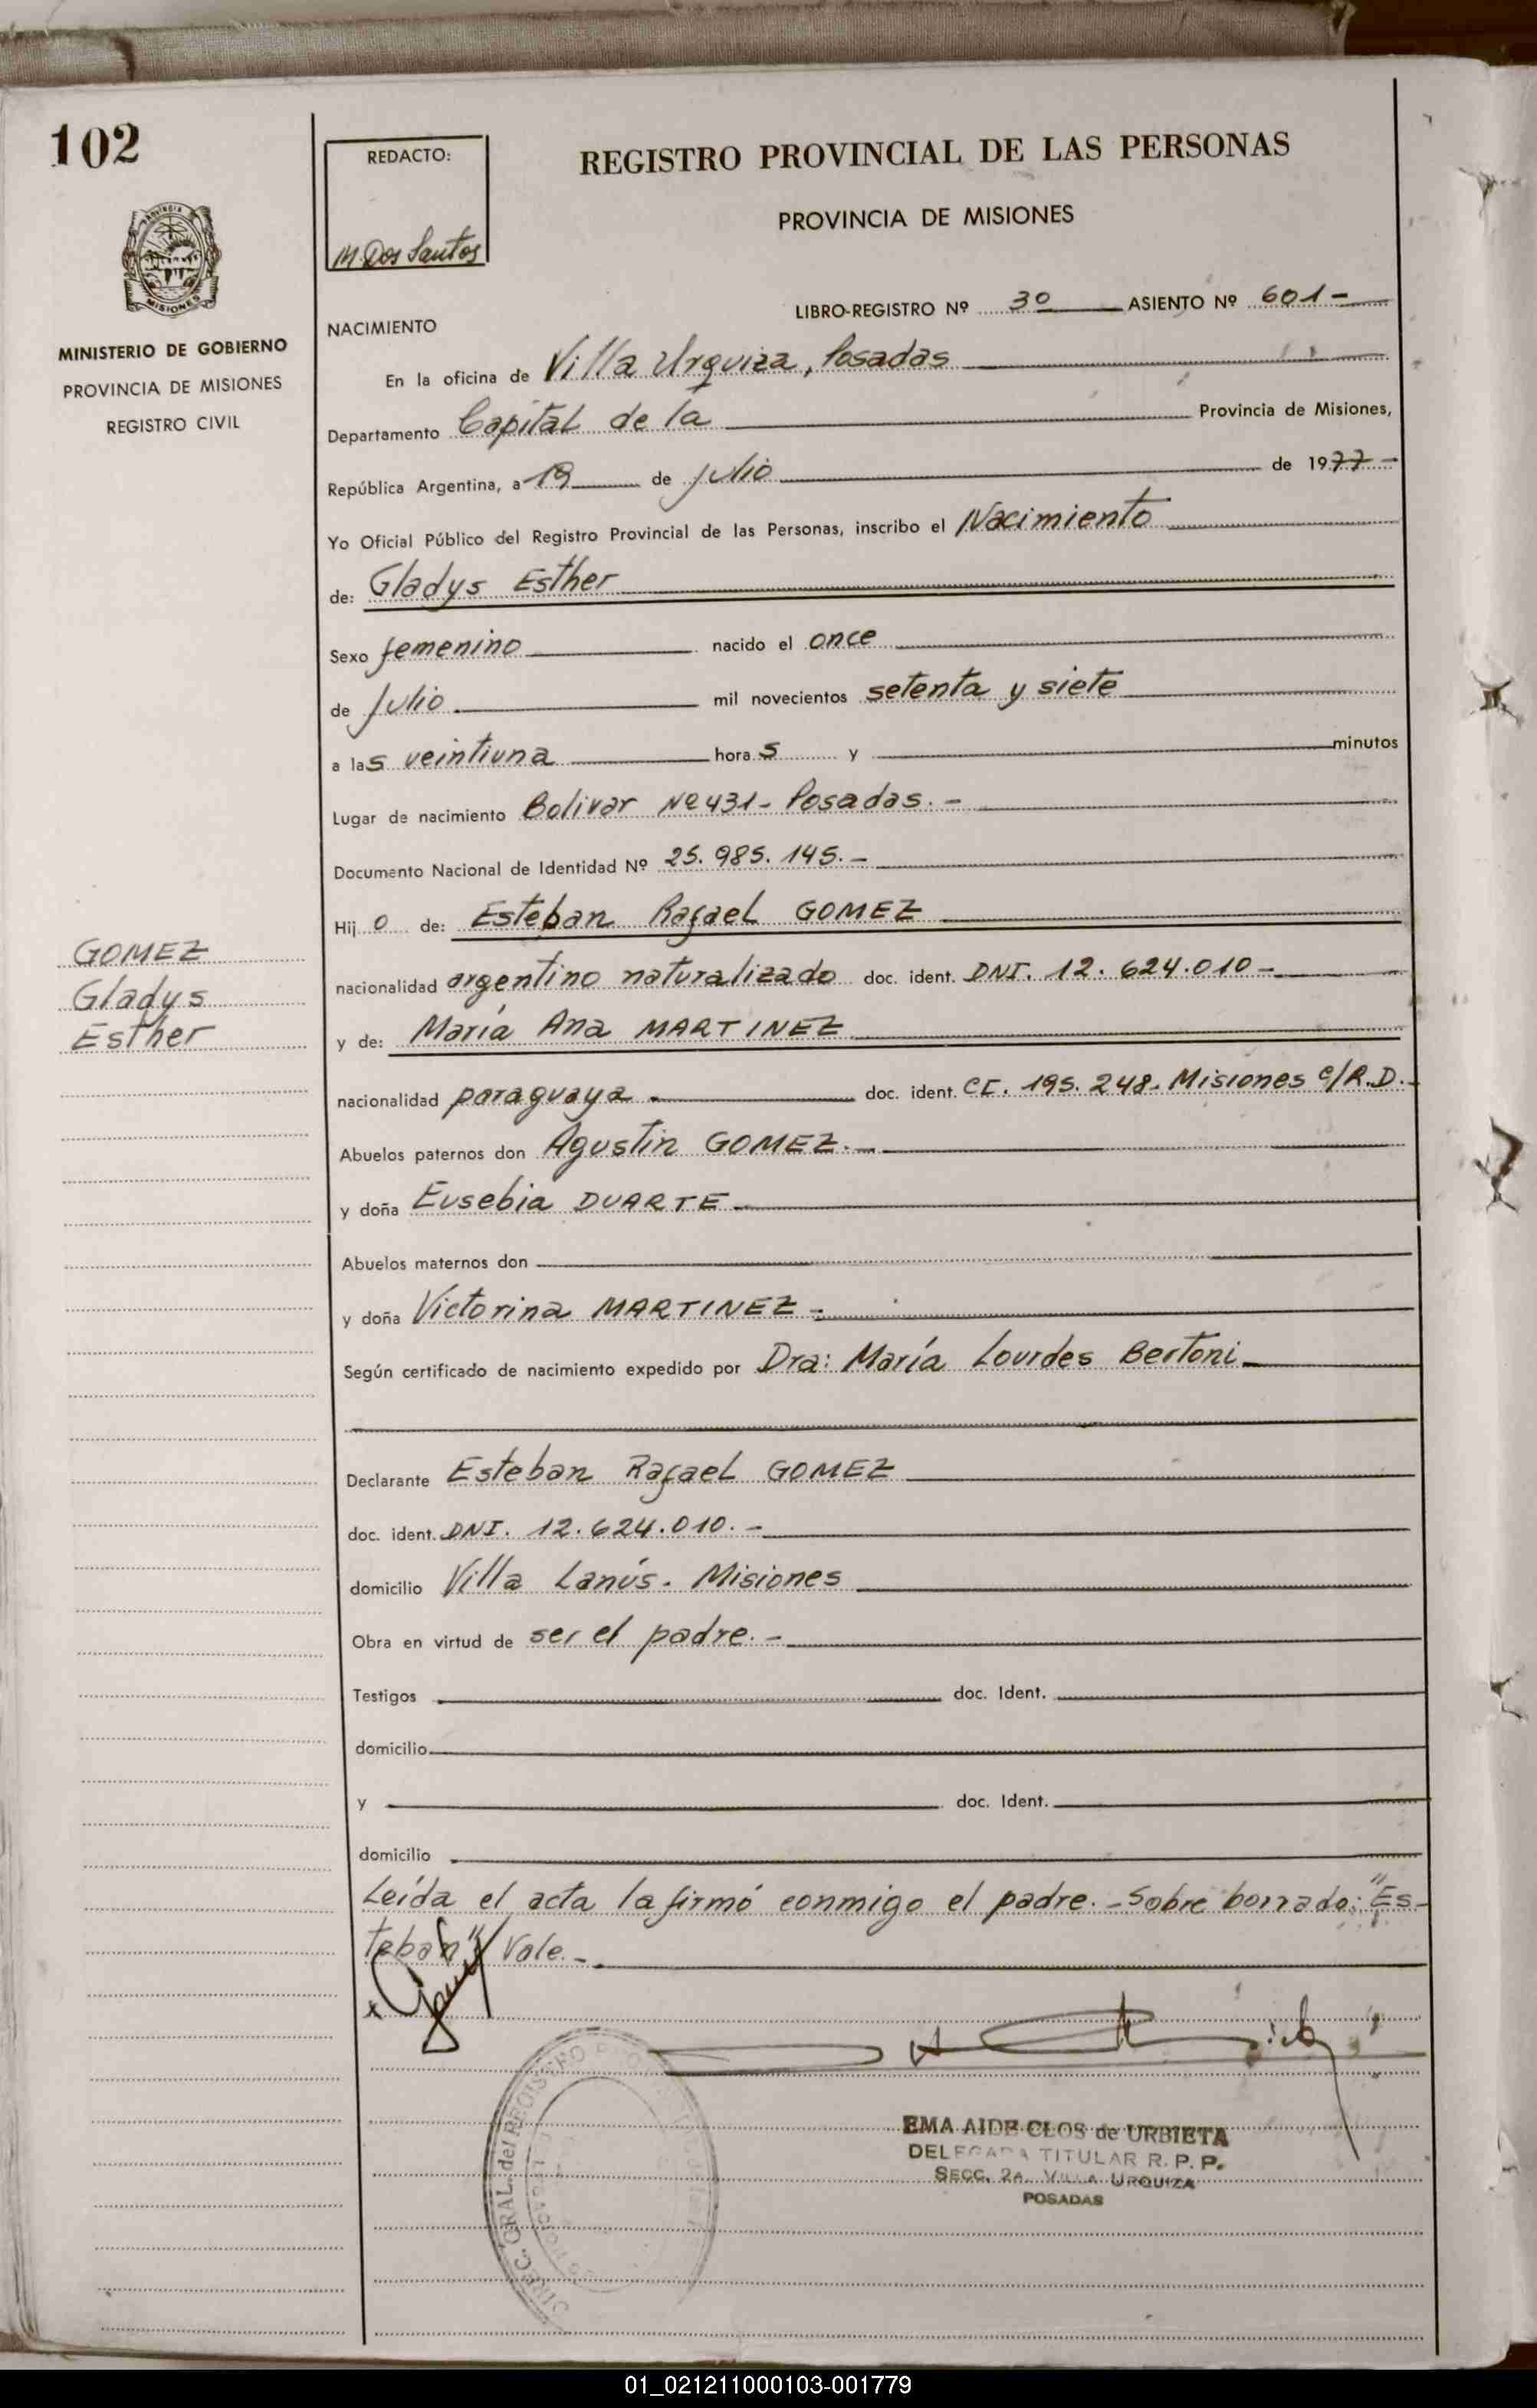 102
REDACTO:
M. Dos Santos
REGISTRO PROVINCIAL DE LAS PERSONAS
PROVINCIA DE MISIONES
MISIONES
MINISTERIO DE GOBIERNO
PROVINCIA DE MISIONES
REGISTRO CIVIL
LIBRO-REGISTRO Nº 3º ASIENTO Nº 601-
NACIMIENTO
En la oficina de Villa Urquiza, Posadas
Departamento Capital de la Provincia de Misiones,
República Argentina, a 19 de julio de 1977-
Yo Oficial Público del Registro Provincial de las Personas, inscribo el Nacimiento
de: Gladys Esther
Sexo femenino nacido el once
de julio mil novecientos setenta y siete
a las veintiuna horas y minutos
Lugar de nacimiento Bolivar Nº 431- Posadas.-
Documento Nacional de Identidad Nº 25.985.145.-
Hijo de: Esteban Rafael GOMEZ
nacionalidad argentino naturalizado doc. ident. DNI. 12.624.010-
y de: María Ana MARTINEZ
nacionalidad paraguaya doc. ident. CI. 195.248- Misiones c/R.D.-
Abuelos paternos don Agustin GOMEZ.-
y doña Eusebia DUARTE
Abuelos maternos don
y doña Victorina MARTINEZ-
Según certificado de nacimiento expedido por Dra: María Lourdes Bertoni
Declarante Esteban Rafael GOMEZ
doc. ident. DNI. 12.624.010.-
domicilio Villa Lanús. Misiones
Obra en virtud de ser el padre.-
Testigos doc. Ident.
domicilio
y doc. Ident.
domicilio
Leída el acta la firmó conmigo el padre.- Sobre borrado: "Es-
teban" Vale.-
GOMEZ
Gladys
Esther
DIREC. GRAL. del REGISTRO
EMA AIDE CLOS de URBIETA
DELEGADA TITULAR R. P. P.
SECC. 2A. VILLA URQUIZA
POSADAS
01_021211000103-001779